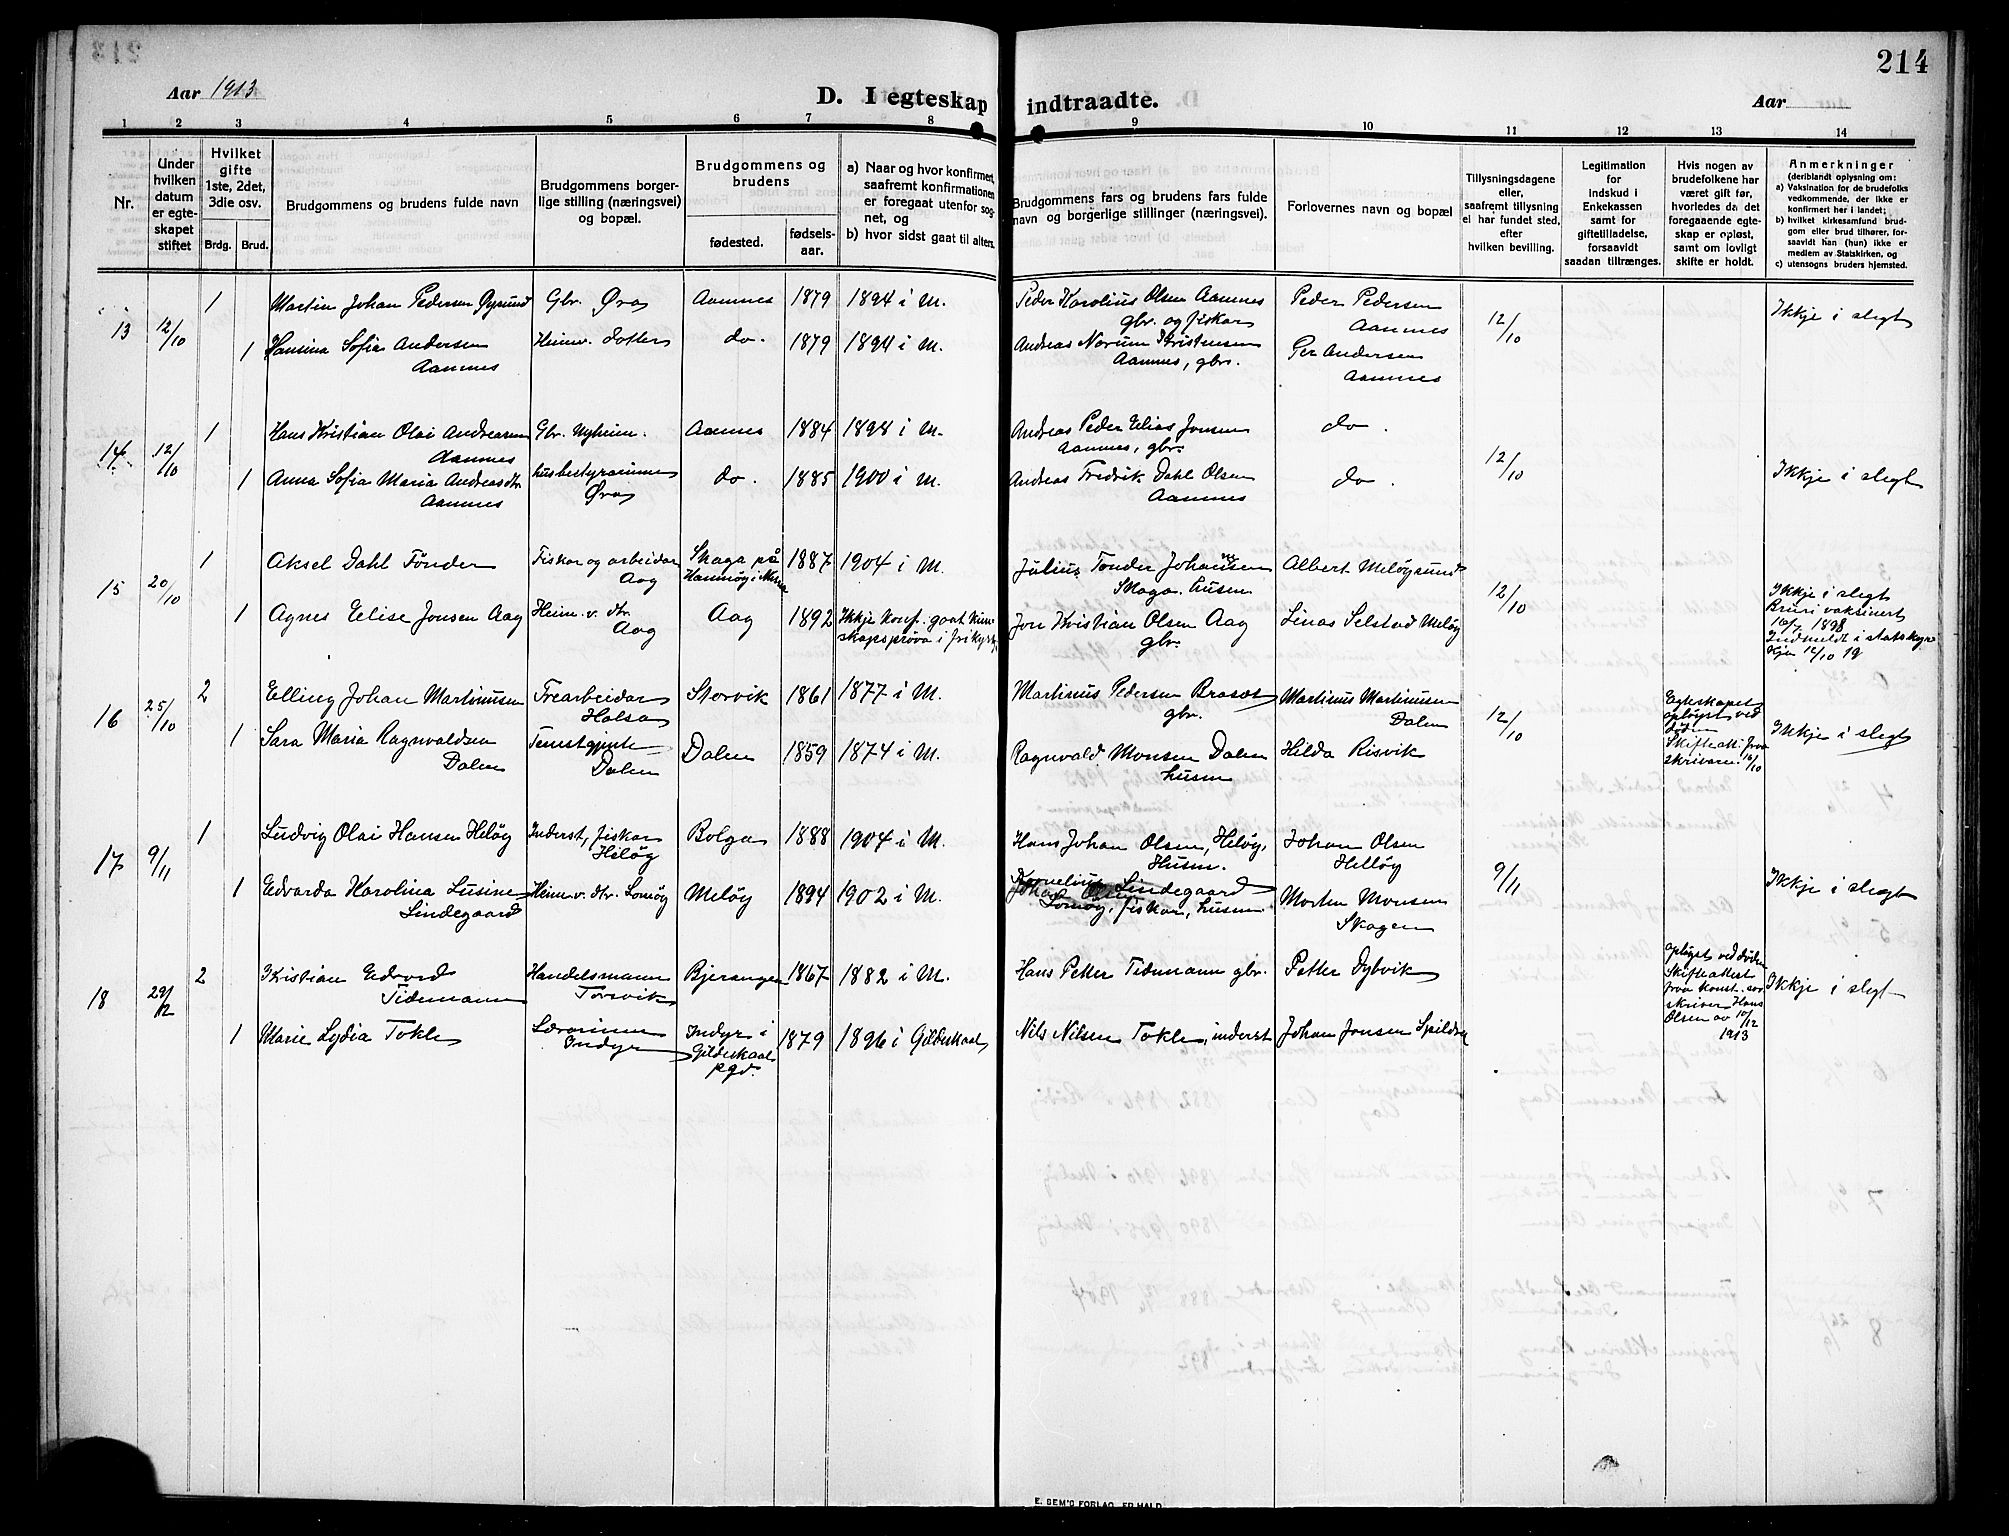 214
Aar 1913
D. I egteskap indtraadte.
Aar
1 2 3 4 5 6 7 8 9 10 11 12 13 14
Nr.
Under hvilken datum er egteskapet stiftet
Hvilket gifte 1ste, 2det, 3die osv.
Brdg. Brud.
Brudgommens og brudens fulde navn
Brudgommens borgerlige stilling (næringsvei) og bopæl.
Brudgommens og brudens
fødested.
fødselsaar.
a) Naar og hvor konfirmert, saafremt konfirmationen er foregaat utenfor sognet, og
b) hvor sidst gaat til alters.
Brudgommens fars og brudens fars fulde navn og borgerlige stillinger (næringsvei).
Forlovernes navn og bopæl
Tillysningsdagene eller, saafremt tillysning ei har fundet sted, efter hvilken bevilling.
Legitimation for indskud i Enkekassen samt for giftetilladelse, forsaavidt saadan tiltrænges.
Hvis nogen av brudefolkene har været gift før, hvorledes da det foregaaende egteskap er opløst, samt om lovligt skifte er holdt.
Anmerkninger
(deriblandt oplysning om:
a) Vaksination for de brudefolks vedkommende, der ikke er konfirmert her i landet;
b) hvilket kirkesamfund brudgom eller brud tilhører, forsaavidt han (hun) ikke er medlem av Statskirken, og
c) utensogns bruders hjemsted.
13 12/10 1 Martin Johan Pedersen Øysund Gbr. Øra Aamnes 1879 1894 i M. Peder Karolius Olsen Aamnes Peder Pedersen 12/10 Ikkje i slegt
gbr. og fiskar Aamnes
1 Hansina Sofia Andersen Heimv. dotter do. 1879 1894 i M. Andreas Norum Kristensen Per Andersen
Aamnes Aamnes, gbr. Aamnes
14 12/10 1 Hans Kristian Olai Andreasen Gbr. Nyheim. Aamnes 1884 1898 i M. Andreas Peder Elias Jonsen do. 12/10
Aamnes Aamnes, gbr.
1 Anna Sofia Maria Andreasdtr husbestyrarinne do. 1885 1900 i M. Andreas Fredrik Dahl Olsen do. Ikkje i slegt
Aamnes Øra Aamnes
15 20/10 1 Aksel Dahl Tönder Fiskar og arbeidar Skaga på 1887 1904 i M. Julius Tönder Johansen Albert Meløysund 12/10
Aag Skaga husm. Ikkje i slegt
1 Agnes Elise Jonsen Aag Heim. v. dtr. Aag 1892 Ikkje konf. gaat kunskapsprøva i frikyrkj. Jon Kristian Olsen Aag Linas Selstad Meløy Bruri vaksinert
Aag gbr. 1898
Indmeldt i statskyrkja 12/10 19
16 25/10 2 Elling Johan Martinussen Trearbeidar Storvik 1861 1877 i M. Martinus Pedersen Braset Martinus Martinussen 12/10 Egteskapet opløyst ved Ikkje i slegt
Halsa gbr. Dalen
1 Sara Maria Ragnvaldsen Tenestgjente Dalen 1859 1874 i M. Ragnvald Monsen Dalen Hilda Risvik Skifteatt. fraa skrivaren 16/10
Dalen Dalen husm
17 9/11 1 Ludvig Olai Hansen Heløy Inderst, fiskar Bolga 1888 1904 i M. Hans Johan Olsen, Heløy, Johan Olsen 9/11
Heløy Husm. Helløy
1 Edvarda Karolina Lusine Heim. v. dtr. Somøy Meløy 1894 1902 i M. Kornelius Lindegaard Morten Monsen Ikkje i slegt
Lindegaard Somøy, fiskar, husm Skagen
18 29/12 2 Kristian Edvard Handelsmann Bjerangen 1867 1882 i M. Hans Petter Tidemann gbr. Petter Dybvik opløyst ved døden Ikkje i slegt
Tidemann Torsvik Skifteattest fraa konst. sorskriver Hans
1 Marie Lydia Tokle Lærarinne Indyr i 1879 1896 i Gildeskaal Nils Nilsen Tokle, inderst Johan Jonsen Spildra Olsen av 10/12
Indyr Gildeskaal pgd. 1913
E. SEM'S FORLAG, FR.HALD